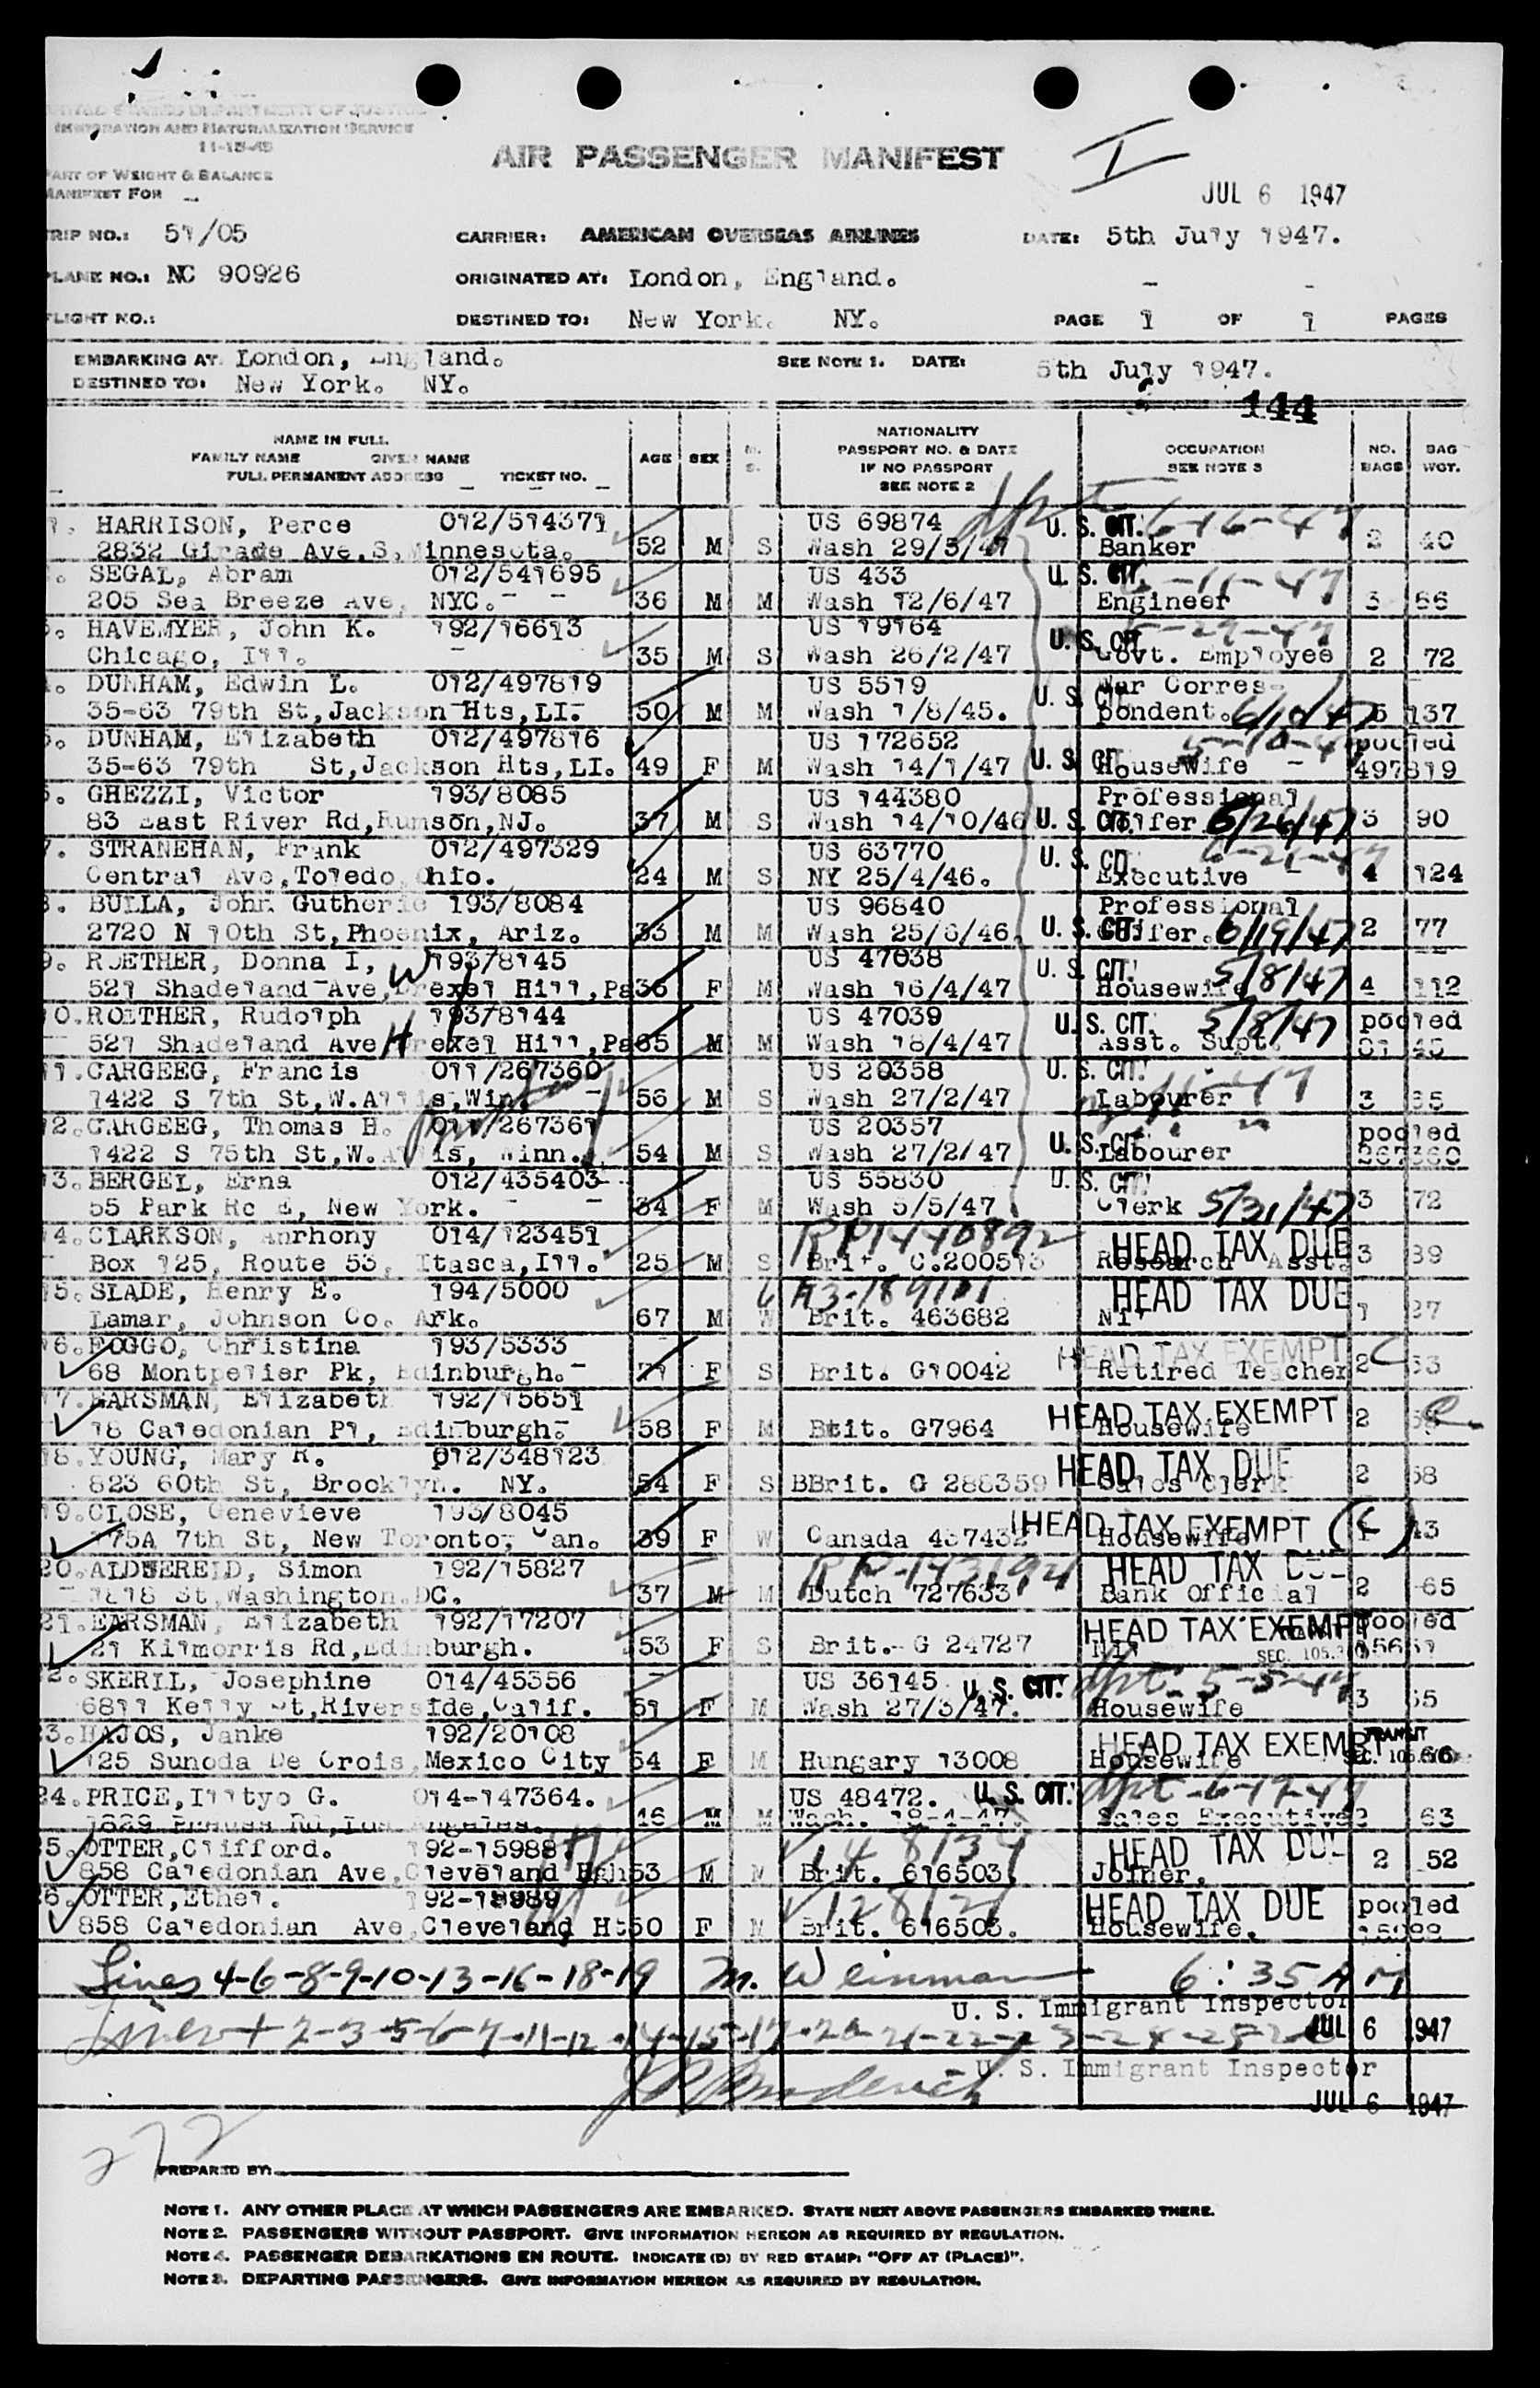 UNITED STATES DEPARTMENT OF JUSTICE
IMMIGRATION AND NATURALIZATION SERVICE
11-15-45
AIR PASSENGER MANIFEST
I
PART OF WEIGHT & BALANCE
MANIFEST FOR
JUL 6 1947
TRIP NO.: 51/05 CARRIER: AMERICAN OVERSEAS AIRLINES DATE: 5th July 1947.
PLANE NO.: NC 90926 ORIGINATED AT: London, England.
FLIGHT NO.: DESTINED TO: New York. NY. PAGE 1 OF 1 PAGES
EMBARKING AT London, England. SEE NOTE 1. DATE: 5th July 1947.
DESTINED TO: New York. NY.
144
NAME IN FULL
FAMILY NAME GIVEN NAME
FULL PERMANENT ADDRESS TICKET NO.
AGE SEX M. S.
NATIONALITY
PASSPORT NO. & DATE
IF NO PASSPORT
SEE NOTE 2
OCCUPATION
SEE NOTE 3
NO. BAGS
BAG WGT.
1. HARRISON, Perce 012/514371 US 69874 U. S. CIT. 6-16-47
2832 Girade Ave,S,Minnesota. 52 M S Wash 29/5/47 Banker 2 40
. SEGAL, Abram 012/541695 US 433 U. S. CIT. -11-47
205 Sea Breeze Ave, NYC. 36 M M Wash 12/6/47 Engineer 3 66
. HAVEMYER, John K. 192/16613 US 19164 U. S. CIT. -29-47
Chicago, Ill. 35 M S Wash 26/2/47 Govt. Employee 2 72
. DUNHAM, Edwin L. 012/497819 US 5519 U. S. CIT. War Corres-
35-63 79th St,Jackson Hts,LI. 50 M M Wash 1/8/45. pondent. 6/10/47 5 137
5. DUNHAM, Elizabeth 012/497816 US 172652 U. S. CIT. pooled
35-63 79th St,Jackson Hts,LI. 49 F M Wash 14/1/47 Housewife - 497819
6. GHEZZI, Victor 193/8085 US 144380 Professional
83 East River Rd,Rumson,NJ. 37 M S Wash 14/10/46 U. S. CIT. Golfer 6/26/47 3 90
7. STRANEHAN, Frank 012/497329 US 63770 U. S. CIT. 6-21-47
Central Ave,Toledo,Ohio. 24 M S NY 25/4/46. Executive 4 124
8. BULLA, John Gutherie 193/8084 US 96840 Professional
2720 N 10th St,Phoenix, Ariz. 33 M M Wash 25/6/46. U. S. CIT. Golfer. 6/19/47 2 77
9. ROETHER, Donna I, W 193/8145 US 47038 U. S. CIT.
521 Shadeland Ave,Drexel Hill,Pa 36 F M Wash 16/4/47 Housewife 5/8/47 4 112
10. ROETHER, Rudolph 193/8144 US 47039 U. S. CIT. 5/8/47 pooled
521 Shadeland Ave H Drexel Hill,Pa 65 M M Wash 18/4/47 Asst. Supt. 8145
11. CARGEEG, Francis 011/267360 US 20358 U. S. CIT.
1422 S 7th St,W.Allis,Win. 56 M S Wash 27/2/47 Labourer 3 65
12. CARGEEG, Thomas H. 011/267361 US 20357 U. S. CIT. pooled
1422 S 75th St,W.Allis, Winn. 54 M S Wash 27/2/47 Labourer 267360
13. BERGEL, Erna 012/435403 US 55830 U. S. CIT.
55 Park Rd E, New York. 34 F M Wash 5/5/47 Clerk 5/31/47 3 72
14. CLARKSON, Anrhony 014/123451 RP1440892 HEAD TAX DUE
Box 125, Route 53, Itasca,Ill. 25 M S Brit. C.200513 Research Asst. 3 89
15. SLADE, Henry E. 194/5000 HEAD TAX DUE
Lamar, Johnson Co. Ark. 67 M W Brit. 463682 Nil 1 27
16. FOGGO, Christina 193/5333 HEAD TAX EXEMPT
68 Montpelier Pk, Edinburgh. 71 F S Brit. G10042 Retired Teacher 2 C 53
17. EARSMAN, Elizabeth 192/15651 HEAD TAX EXEMPT
18 Caledonian Pl, Edinburgh. 58 F M Btit. G7964 Housewife 2
18. YOUNG, Mary R. 012/348123 HEAD TAX DUE
823 60th St, Brooklyn. NY. 54 F S BBrit. G 288359 Sales Clerk 2 58
19. CLOSE, Genevieve 193/8045 HEAD TAX EXEMPT (C)
175A 7th St, New Toronto, Can. 39 F W Canada 437432 Housewife 1 43
20. ALDWEREID, Simon 192/15827 RP-143194 HEAD TAX DUE
1818 St,Washington.DC. 37 M M Dutch 727633 Bank Official 2 65
21. EARSMAN, Elizabeth 192/17207 HEAD TAX EXEMPT pooled
21 Kilmorris Rd,Edinburgh. 53 F S Brit. G 24727 Nil 15651
22. SKERIL, Josephine 014/45556 US 36145 U. S. CIT. dpt. 5-5-47
6811 Kelly St,Riverside,Calif. 51 F M Wash 27/3/47. Housewife 3 55
23. HAJOS, Janke 192/20108 HEAD TAX EXEMPT TRANSIT
125 Sunoda De Crois,Mexico City 54 F M Hungary 13008 Housewife 66
24. PRICE,Illtyo G. 014-147364. US 48472. U. S. CIT. dpt -6-17-47
1829 Rd,Los Angeles. 46 M M Wash. 18-4-47. Sales Executive 2 63
25. OTTER,Clifford. 192-15988. 148134 HEAD TAX DUE
858 Caledonian Ave,Cleveland Hgh 53 M M Brit. 616503 Joiner. 2 52
26. OTTER,Ethel. 192-15989 128121 HEAD TAX DUE pooled
858 Caledonian Ave,Cleveland Ht 50 F M Brit. 616503. Housewife. 15988
Lines 4-6-8-9-10-13-16-18-19 M. Weinman 6:35 AM
U. S. Immigrant Inspector
JUL 6 1947
U. S. Immigrant Inspector
JUL 6 1947
272
PREPARED BY:
NOTE 1. ANY OTHER PLACE AT WHICH PASSENGERS ARE EMBARKED. STATE NEXT ABOVE PASSENGERS EMBARKED THERE.
NOTE 2. PASSENGERS WITHOUT PASSPORT. GIVE INFORMATION HEREON AS REQUIRED BY REGULATION.
NOTE 4. PASSENGER DEBARKATIONS EN ROUTE. INDICATE (D) BY RED STAMP: "OFF AT (PLACE)".
NOTE 3. DEPARTING PASSENGERS. GIVE INFORMATION HEREON AS REQUIRED BY REGULATION.